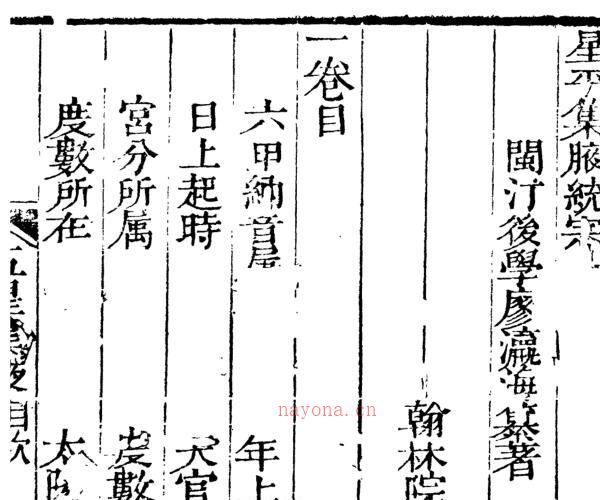 星平集腋統宗
閩汀後學廖瀛海纂著
翰林院
一卷目
六甲納音屬 年上
日上起時 天官
宮分所属 度數
度數所在 太陽
目次
nayona.cn